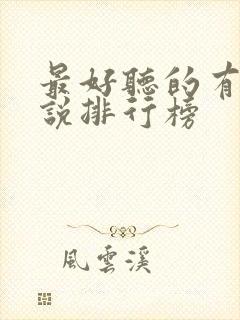 最好聽的有
說排行榜
風雲溪